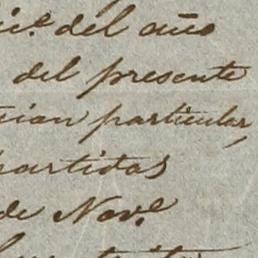 del año
del presente
particular,
partidas
de Nov.e